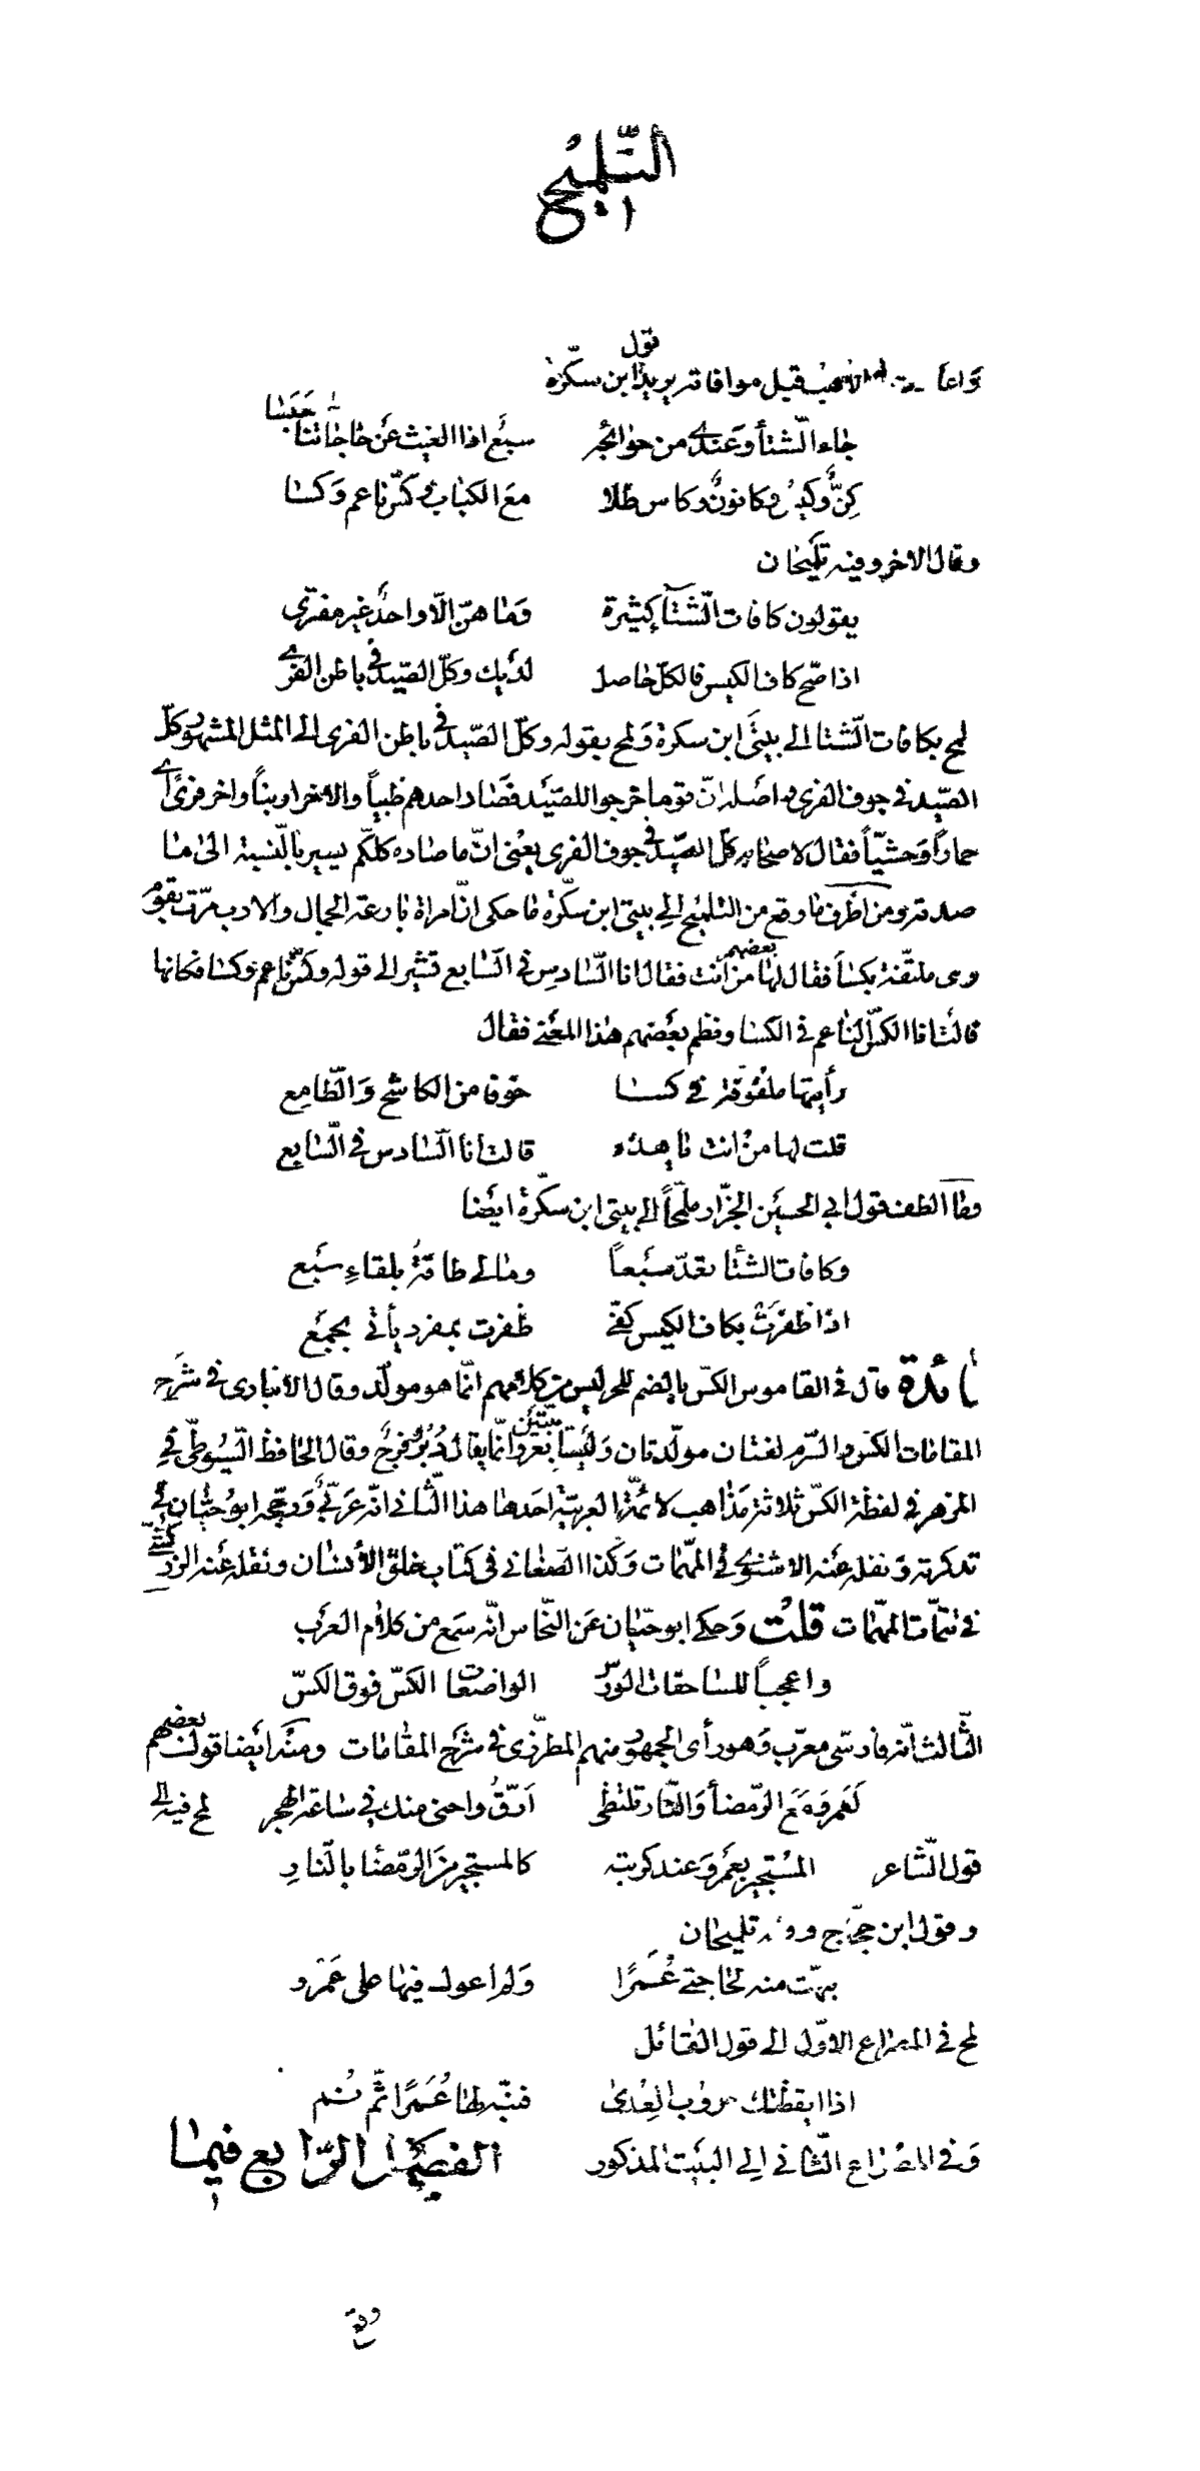 التلميح
قول
قبل موافاته يريد ابن سكّرة
حَبَسا
جاء الشتأ وعندي من حوائجه سبع اذا الغيث عن حاجاتنا
كِنٌّ وكيسٌ وكانونٌ وكاس طلا مع الكباب وكسّ ناعم وكسا
وقال الاخر وفيه تلميحان
يقولون كافات الشتآ كثيرة وما هنّ الّا واحدٌ غير مفترى
اذا صح كاف الكيس فالكل حاصل لديك وكلّ الصّيد في باطن الفرى
لمح بكافات الشتا الى بيتَى ابن سكرة ولمح بقوله وكلّ الصّيد في باطن الفرى الى المثل المشهور كلّ
الصّيد في جوف الفرى واصله انّ قوما خرجوا للصّيد فصاد احدهم ظبياً والاخر ارنباً واخر فرىً اى
حماراً وحشيّاً فقال لاصحابه كلّ الصّيد في جوف الفرى يعنى انّ ما صاده كلكم يسير بالنسبة الى ما
صدته ومن اظرف ما وقع من التلميح الى بيتى ابن سكّرة ما حكى انّ امراة بارعة الجمال والادب مرّت بقوم
وهى ملتفّة بكسأ فقال لها بعضهم من انت فقالت انا السّادس في السّابع تشير الى قوله وكسّ ناعم وكسا فكانها
قالت انا الكسّ الناعم في الكسا ونظم بعضهم هذا المعنى فقال
رأيتها ملفوفة في كسا خوفا من الكاشح والطّامع
قلت لها من انت يا هذه قالت انا السّادس في السّابع
وما الطف قول ابى الحسين الجزّار ملمّحاً الى بيتى ابن سكّرة ايضا
وكافات الشتأ تعدّ سبعاً ومالى طاقةٌ بلقاءِ سبع
اذا ظفرتْ بكاف الكيس كفّى ظفرت بمفرد يأتى بجمع
فائدة قال في القاموس الكسّ بالضم للحر ليس من كلامهم انّما هو مولّد وقال الانبارى في شرح
المقامات الكسّ والسّرم لغتان مولّدتان وليستا بعربيّتين وانّما يقال دُبُرٌ وفرجٌ وقال الحافظ السّيوطى في
المزهر في لفظة الكسّ ثلاثة مذاهب لائمّة العربيّة احدها هذا الثّانى انّه عربىٌّ ورجّحه ابو حيّان في
تذكرته ونقله عنه الاسنوى في المهمّات وكذا الصّغانى في كتاب خلق الأنسان ونقله عنه الزركشىّ
في تتمّات المهمّات قلت وحكى ابو حيّان عن النحّاس انّه سمع من كلام العرب
واعجباً للساحقات الدرّ الواضعات الكسّ فوق الكسّ
الثّالث انّه فارسّى معرّب وهو رأى الجمهور منهم المطرّزى في شرح المقامات ومنه ايضا قول بعضهم
لعمرو مع الرّمضأ والنّار تلتظى ارقّ واحنى منك في ساعة الهجر لمح فيه الى
قول الشّاعر المستجير بعمرو عند كربته كالمستجير من الرّمضا بالنّارِ
وقول ابن حجّاج وفيه تلميحان
نبّهت منه لحاجتى عُمَرًا ولم اعول فيها على عمرو
لمح في المصراع الاوّل الى قول القائل
اذا ايقظتك حروب العِدى فنبّه لها عُمَرًا ثمّ نم
وفي المصراع الثّانى الى البيت المذكور الفصل الرّابع فيما